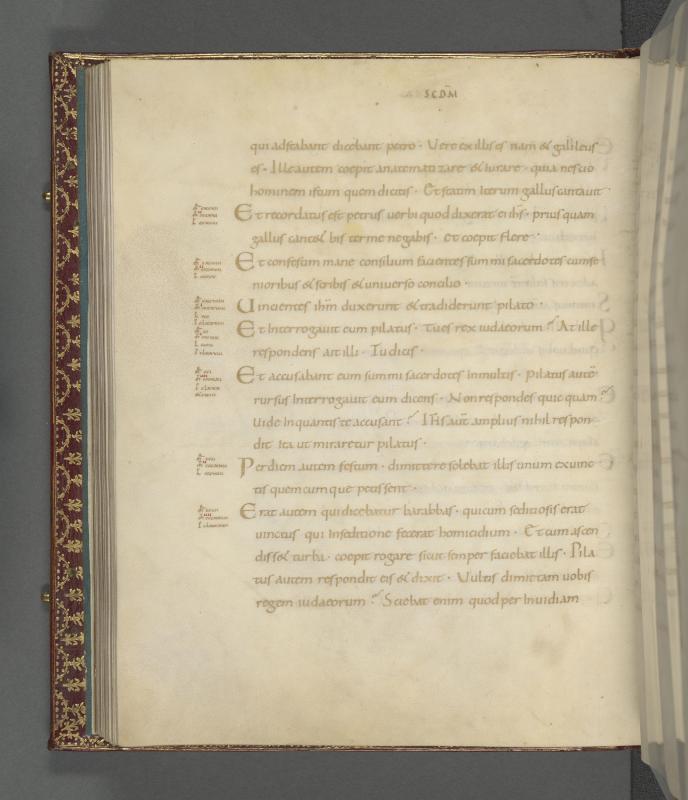 SCDM̄
qui adstabant dicebant petro · Vere ex illis es nam̄ & galileus
es · Ille autem coepit anatematizare & iurare · quia nescio
hominem istum quem dicitis · Et statim iterum gallus cantauit
Et recordatus est petrus uerbi quod dixerat ei ih̄s · prius quam
gallus cant& bis ter me negabis · et coepit flere ·
Et confestim mane consilium facientes summi sacerdotes cum se
nioribus & scribis & uniuerso concilio ·
Uincientes ih̄m duxerunt & tradiderunt pilato ·
Et Interrogauit eum pilatus · Tu es rex iudaeorum ? At ille
respondens ait illi · Tu dicis ·
Et accusabant eum summi sacerdotes In multis · Pilatus autē
rursus Interrogauit eum dicens · Non respondes quicquam ?
Uide In quantis te accusant ? Ih̄s aūt amplius nihil respon
dit Ita ut miraretur pilatus ·
Per diem autem festum · dimittere solebat illis unum ex uinc
tis quemcumque petissent ·
Erat autem qui dicebatur barabbas · qui cum seditiosis erat
uinctus qui In seditione fecerat homicidium · Et cum ascen
diss& turba · coepit rogare sicut semper faciebat illis · Pila
tus autem respondit eis & dixit · Vultis dimittam uobis
regem iudaeorum ? Sciebat enim quod per Inuidiam